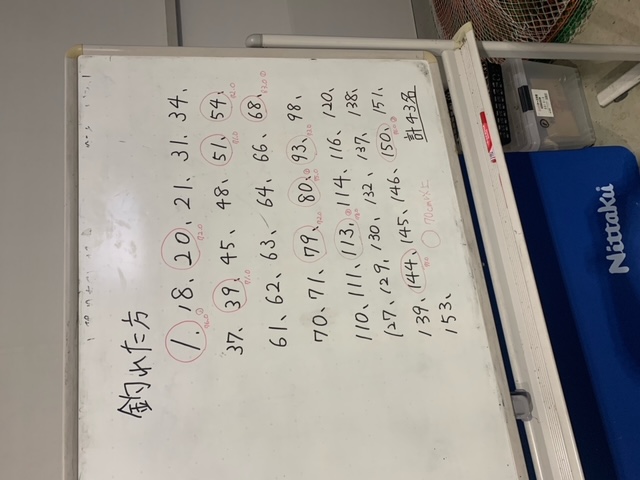 釣れた方
1. 18、20、21、31、34、
37、39、45、48、51、54、
61、62、63、64、66、68、
70、71、79、80、93、98、
110、111、113、114、116、120、
127、129、130、132、137、138、
139、144、145、146、150、151、
153、
○70cm以上
計43名
Nittaku